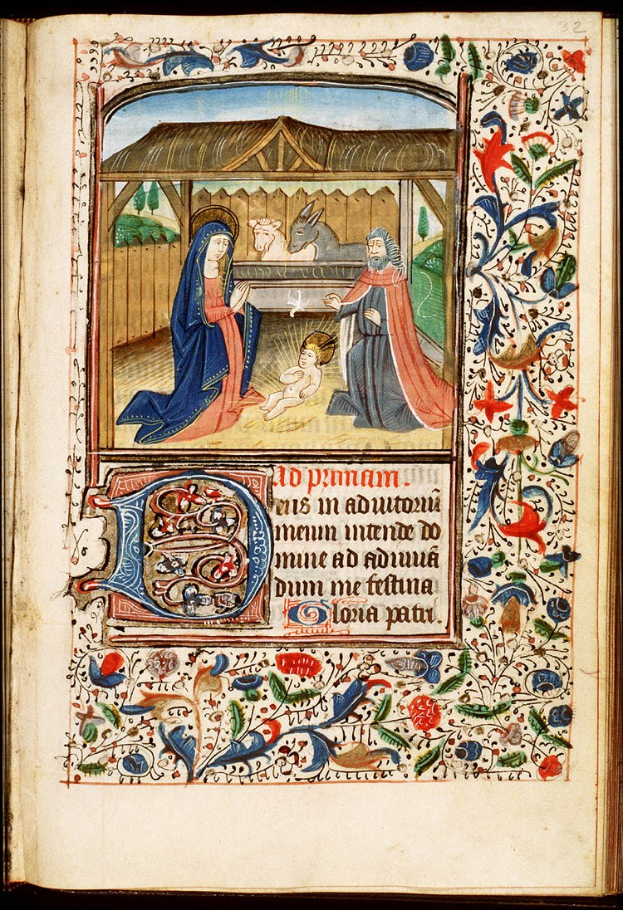 32
Ad primam.
Deus in adiutoriū
meum intende do
mine ad adiuuā
dum me festina
Gloria patri.